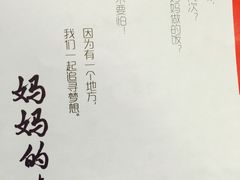 次?
妈做的饭?
不要怕!
因为有一个地方,
我们一起追寻梦想。
妈妈的